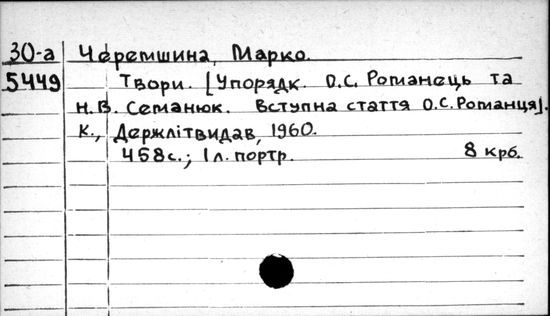 30-а Черемшина, Марко.
5449 Твори. [Упорядк. О.С. Романець та
Н.В. Семанюк. Вступна стаття О.С. Романця].
К., Держлітвидав, 1960.
458с.; 1л. портр. 8 крб.